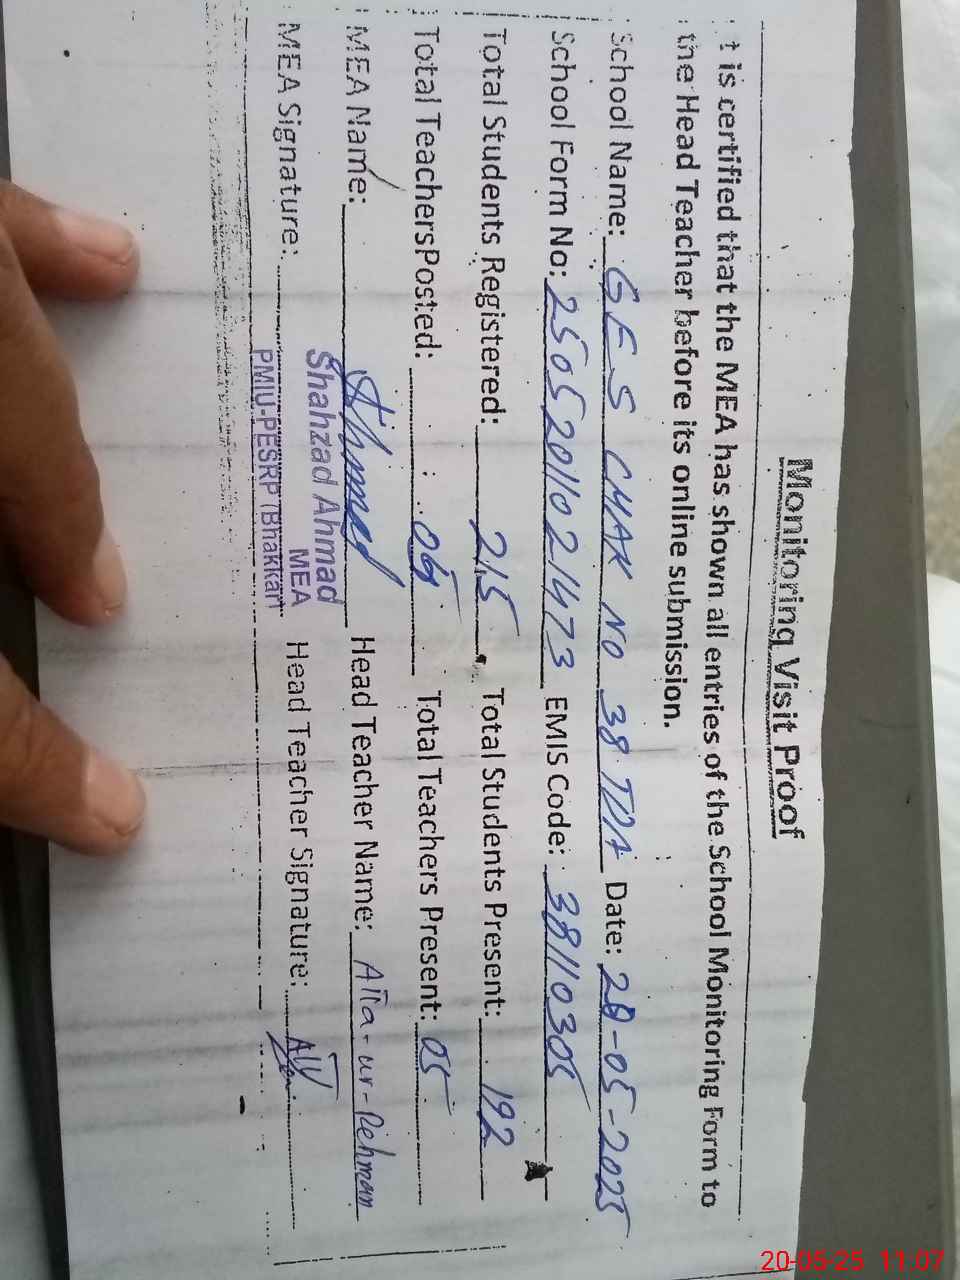 Monitoring Visit Proof
t is certified that the MEA has shown all entries of the School Monitoring Form to
the Head Teacher before its online submission.
School Name: GES CHAK NO 38 TDA Date: 20-05-2025
School Form No: 2505201102-1473 EMIS Code: 38110305
Total Students Registered: 215 Total Students Present: 192
Total TeachersPosted: 05 Total Teachers Present: 05
MEA Name: Ahmad Head Teacher Name: Atta-ur-Rehman
Shahzad Ahmad
MEA Signature: MEA Head Teacher Signature:
PMIU-PESRP (Bhakkar)
20-05-25 11:07